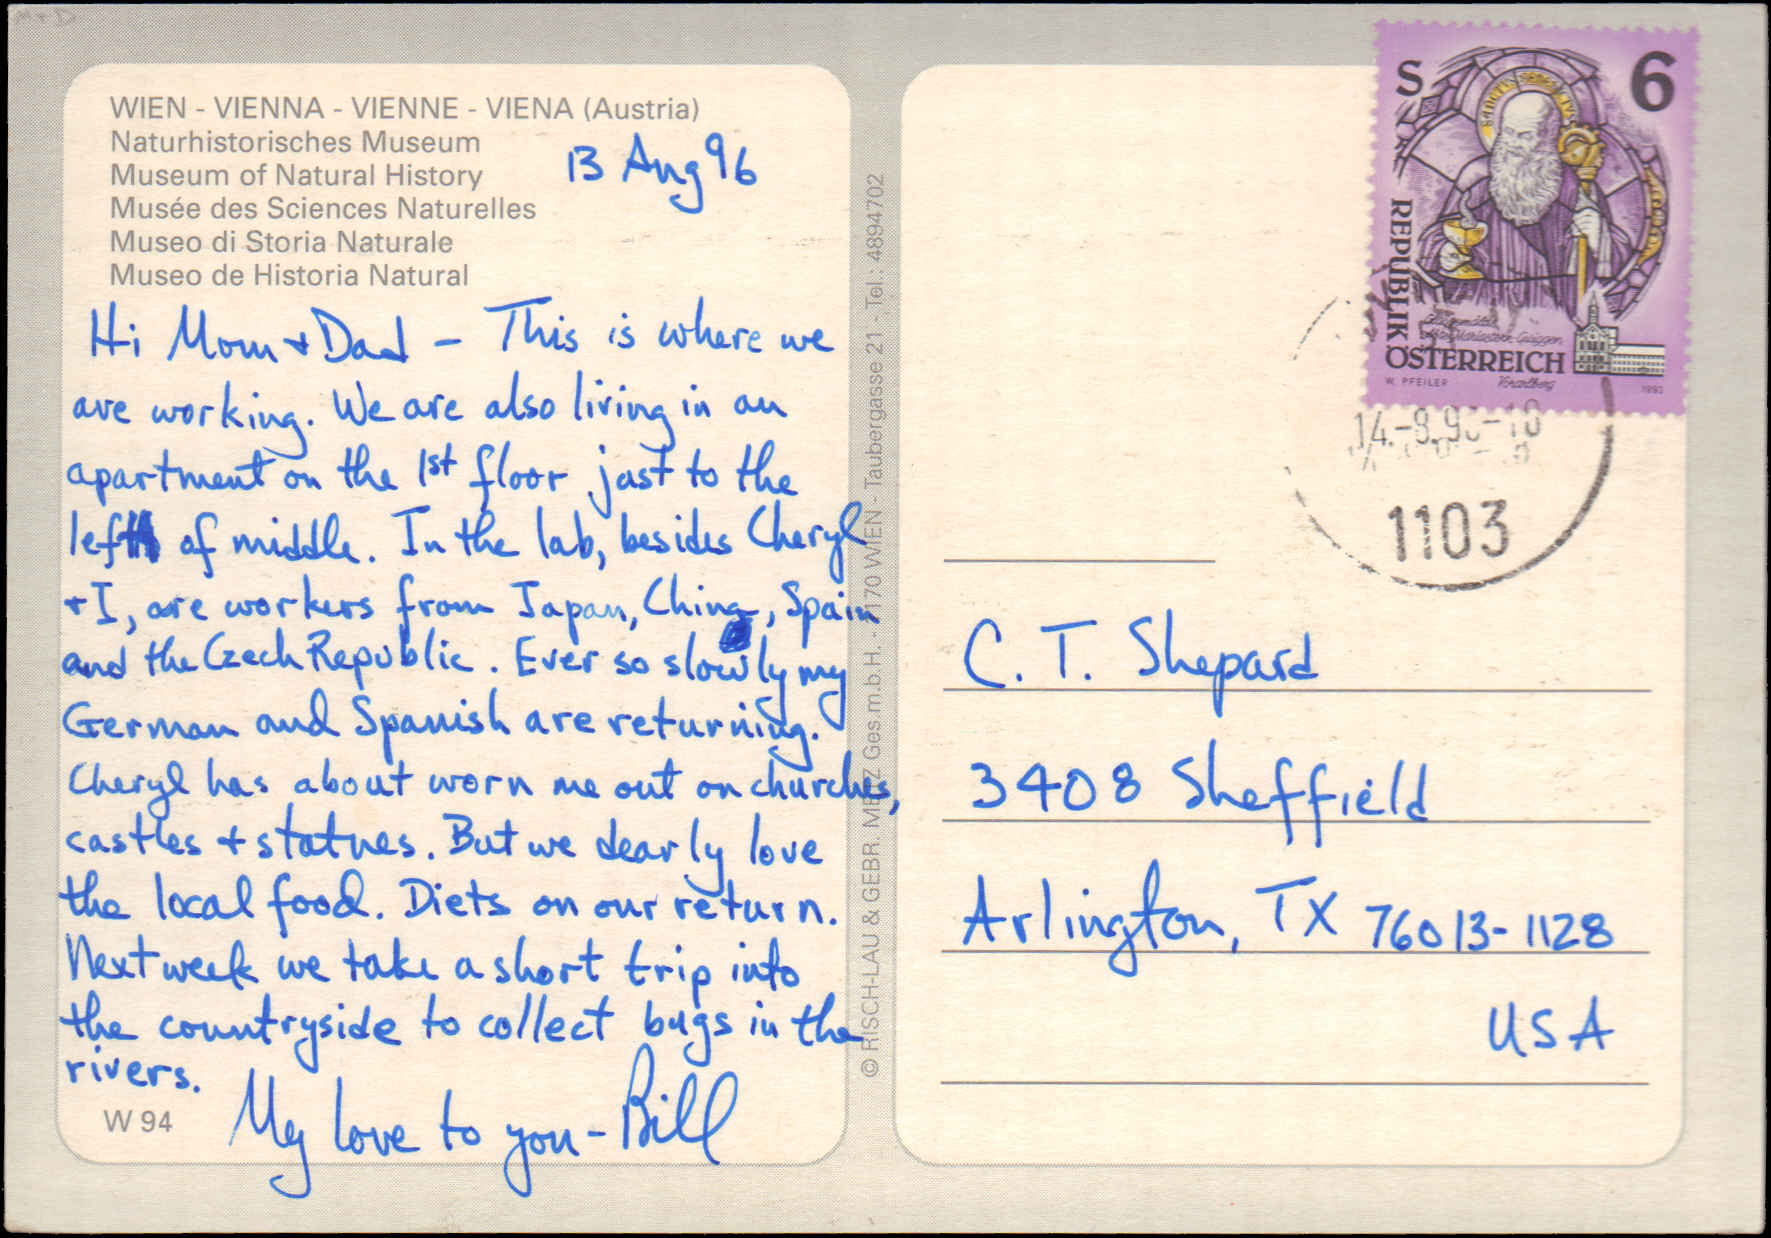 WIEN - VIENNA - VIENNE - VIENA (Austria)
Naturhistorisches Museum
Museum of Natural History
Musée des Sciences Naturelles
Museo di Storia Naturale
Museo de Historia Natural
13 Aug 96
Hi Mom + Dad - This is where we
are working. We are also living in an
apartment on the 1st floor just to the
left of middle. In the lab, besides Cheryl
+ I, are workers from Japan, China, Spain
and the Czech Republic. Ever so slowly my
German and Spanish are returning.
Cheryl has about worn me out on churches,
castles + statues. But we dearly love
the local food. Diets on our return.
Next week we take a short trip into
the countryside to collect bugs in the
rivers.
My love to you - Bill
W 94
© RISCH-LAU & GEBR. METZ Ges.m.b.H. - 1170 WIEN - Taubergasse 21 - Tel.: 4894702
S 6
REPUBLIK
ÖSTERREICH
W. PFEILER
Vorarlberg
1993
1103
C. T. Shepard
3408 Sheffield
Arlington, TX 76013-1128
USA